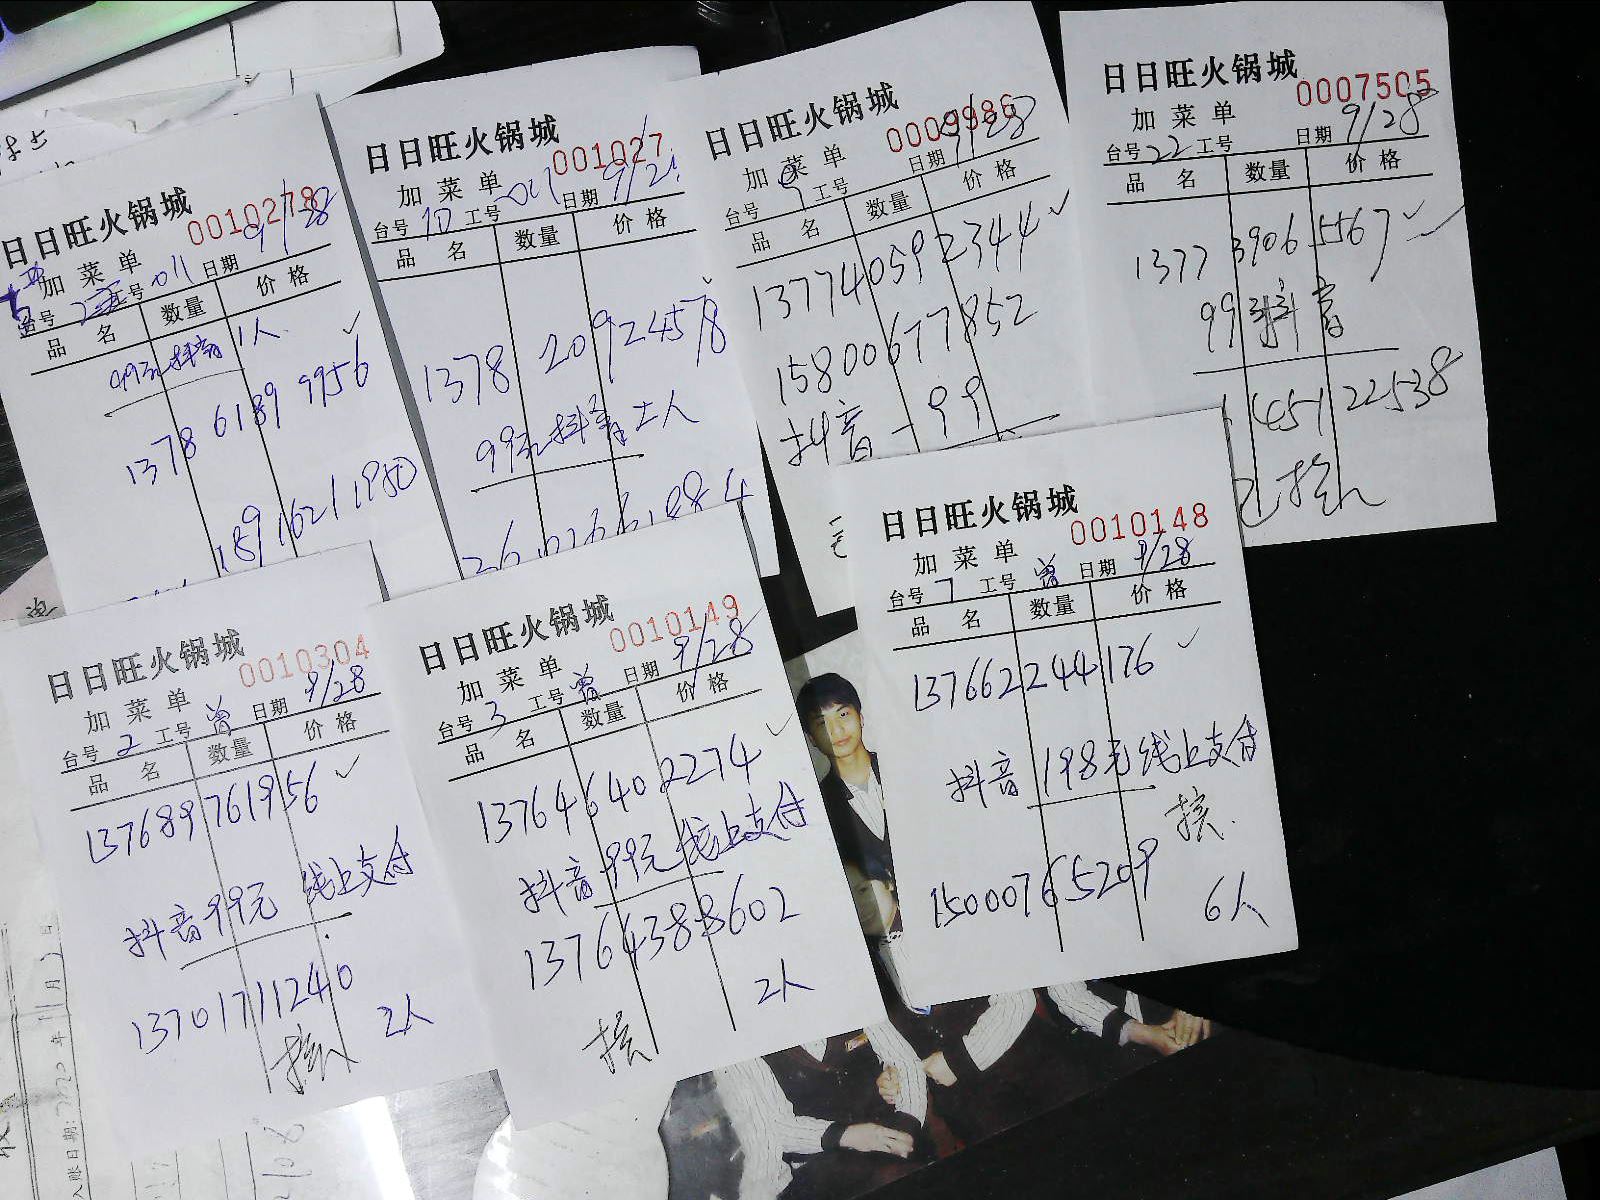 日日旺火锅城
0010278
加菜单
工号 011 日期 9/28
品名 数量 价格
99元抖音 1人
1378 6189 9956
1891621950
日日旺火锅城
001027
加菜单
台号 10 工号 011 日期
品名 数量 价格
1378 20924578
99元抖音 二人
日日旺火锅城
0009986
加菜单
台号 9 工号 日期 9/28
品名 数量 价格
13774059 2344
15800677852
抖音-99
日日旺火锅城
0007505
加菜单
台号 22 工号 日期 9/28
品名 数量 价格
1377 3906 5567
99 抖音
145122538
日日旺火锅城
0010304
加菜单
台号 2 工号 曾 日期 9/28
品名 数量 价格
137689761956
抖音99元 线上支付
13701711240
2人
日日旺火锅城
0010149
加菜单
台号 3 工号 曾 日期 9/28
品名 数量 价格
137646402274
抖音99元线上支付
13764388602
2人
日日旺火锅城
0010148
加菜单
台号 7 工号 曾 日期 9/28
品名 数量 价格
13766224176
抖音 198元线上支付
15000765209
6人